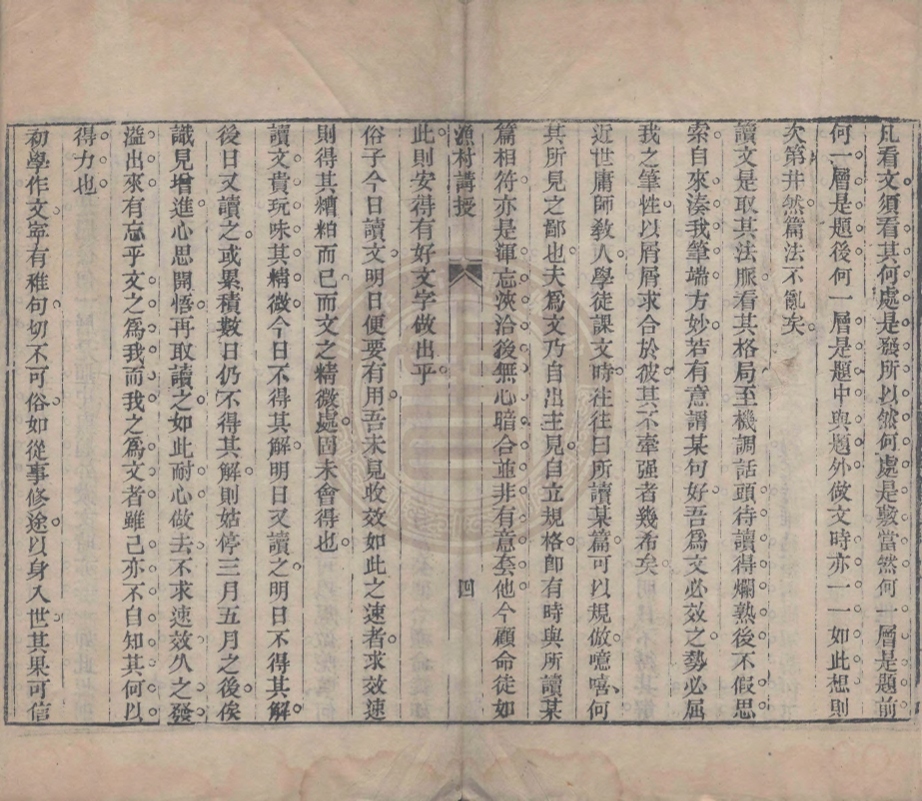 凡看文須看其何處是發所以然何處是敷當然何一層是題前
何一層是題後何一層是題中與題外做文時亦一一如此想則
次第井然篇法不亂矣
讀文是取其法脈看其格局至機調話頭待讀得爛熟後不假思
索自來湊我筆端方妙若有意謂某句好吾爲文必效之勢必屈
我之筆性以屑屑求合於彼其不牽强者幾希矣
近世庸師敎人學徒課文時往往曰所讀某篇可以規倣噫嘻何
其所見之鄙也夫爲文乃自出主見自立規格卽有時與所讀某
篇相符亦是渾忘浹洽後無心暗合並非有意套他今顧命徒如
漁村講授
四
此則安得有好文字做出乎
俗子今日讀文明日便要有用吾未見收效如此之速者求效速
則得其糟粕而已而文之精微處固未會得也
讀文貴玩味其精微今日不得其解明日又讀之明日不得其解
後日又讀之或累積數日仍不得其解則姑停三月五月之後俟
識見增進心思開悟再取讀之如此耐心做去不求速效久之發
溢出來有忘乎文之爲我而我之爲文者雖己亦不自知其何以
得力也
初學作文寧有稚句切不可俗如從事修途以身入世其果可信